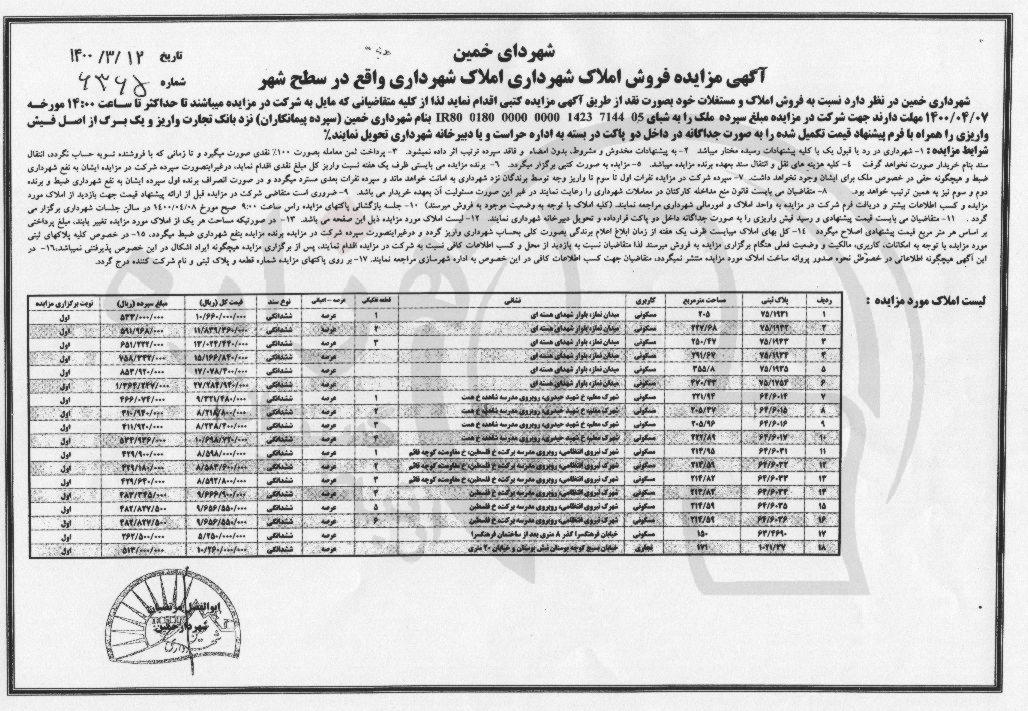 شهرداری خمین
آگهی مزایده فروش املاک شهرداری املاک شهرداری واقع در سطح شهر
تاریخ ۱۴۰۰/۳/۱۲
شماره
شهرداری خمین در نظر دارد نسبت به فروش املاک و مستغلات خود بصورت نقد از طریق آگهی مزایده کتبی اقدام نماید لذا از کلیه متقاضیانی که مایل به شرکت در مزایده میباشند تا حداکثر تا ساعت ۱۴:۰۰ مورخه
۱۴۰۰/۰۴/۰۷ مهلت دارند جهت شرکت در مزایده مبلغ سپرده ملک را به شبای IR80 0180 0000 0000 1423 7144 05 بنام شهرداری خمین (سپرده پیمانکاران) نزد بانک تجارت واریز و یک برگ از اصل فیش
واریزی را همراه با فرم پیشنهاد قیمت تکمیل شده را به صورت جداگانه در داخل دو پاکت در بسته به اداره حراست و یا دبیرخانه شهرداری تحویل نمایند.
شرایط مزایده : ۱- شهرداری در رد یا قبول یک یا کلیه پیشنهادات رسیده مختار میباشد ۲- به پیشنهادات مخدوش و مشروط، بدون امضاء و فاقد سپرده ترتیب اثر داده نمیشود. ۳- پرداخت ثمن معامله بصورت ۱۰۰٪ نقدی صورت میگیرد و تا زمانی که با فروشنده تسویه حساب نگردد، انتقال
سند بنام خریدار صورت نخواهد گرفت ۴- کلیه هزینه های نقل و انتقال سند بعهده برنده مزایده میباشد. ۵- مزایده به صورت کتبی برگزار میگردد. ۶- برنده مزایده می بایستی ظرف یک هفته نسبت واریز کل مبلغ نقدی اقدام نماید، درغیراینصورت سپرده شرکت در مزایده ایشان به نفع شهرداری
ضبط و هیچگونه حقی در خصوص ملک برای ایشان وجود نخواهد داشت. ۷- سپرده شرکت در مزایده نفرات اول تا سوم تا واریز وجه توسط برندگان نزد شهرداری به امانت خواهد ماند و سپرده نفرات بعدی مسترد میگردد و در صورت انصراف برنده اول سپرده ایشان به نفع شهرداری ضبط و برنده
دوم و سوم نیز به همین ترتیب خواهد بود. ۸- متقاضیان می بایست قانون منع مداخله کارکنان در معاملات شهرداری را رعایت نمایند در غیر این صورت مسئولیت آن بعهده خریدار می باشد. ۹- ضروری است متقاضی شرکت در مزایده قبل از ارائه پیشنهاد قیمت جهت بازدید از املاک مورد
مزایده و کسب اطلاعات بیشتر و دریافت فرم شرکت در مزایده به واحد املاک و امورمالی شهرداری مراجعه نمایند. (کلیه املاک با توجه به وضعیت موجود به فروش میرسند) ۱۰- جلسه بازگشائی پاکتهای مزایده راس ساعت ۹:۰۰ صبح مورخ ۱۴۰۰/۰۴/۰۸ در سالن جلسات شهرداری برگزار می
گردد. ۱۱- متقاضیان می بایست قیمت پیشنهادی و رسید فیش واریزی را به صورت جداگانه داخل دو پاکت قرارداده و تحویل دبیرخانه شهرداری نمایند. ۱۲- لیست املاک مورد مزایده ذیل این صفحه می باشد. ۱۳- در صورتیکه مساحت هر یک از املاک مورد مزایده تغییر یابند، مبلغ پرداختی
بر اساس هر متر مربع قیمت پیشنهادی اصلاح میگردد ۱۴- کل بهای املاک میبایست ظرف یک هفته از زمان ابلاغ اعلام برندگی بصورت کلی بحساب شهرداری واریز گردد و درغیراینصورت سپرده شرکت در مزایده برنده مزایده بنفع شهرداری ضبط میگردد، ۱۵- در خصوص کلیه پلاکهای ثبتی
مورد مزایده با توجه به امکانات، کاربری، مالکیت و وضعیت فعلی هنگام برگزاری مزایده به فروش میرسند لذا متقاضیان نسبت به بازدید از محل و کسب اطلاعات کافی نسبت به شرکت در مزایده اقدام نمایند، پس از برگزاری مزایده هیچگونه ایراد اشکال در این خصوص پذیرفتنی نمیباشد. ۱۶- در
این آگهی هیچگونه اطلاعاتی در خصوص نحوه صدور پروانه ساخت املاک مورد مزایده منتشر نمیگردد، متقاضیان جهت کسب اطلاعات کافی در این خصوص به اداره شهرسازی مراجعه نمایند. ۱۷- بر روی پاکتهای مزایده شماره قطعه و پلاک ثبتی و نام شرکت کننده درج گردد.
لیست املاک مورد مزایده :
ردیف پلاک ثبتی مساحت مترمربع کاربری نشانی قطعه تفکیکی عرصه - اعیانی نوع سند قیمت کل (ریال) مبلغ سپرده (ریال) نوبت برگزاری مزایده
۱ ۷۵/۱۹۳۱ ۲۰۵ مسکونی میدان نماز، بلوار شهدای هسته ای ۱ عرصه ششدانگی ۱۰/۶۶۰/۰۰۰/۰۰۰ ۵۳۳/۰۰۰/۰۰۰ اول
۲ ۷۵/۱۹۳۲ ۲۲۷/۶۸ مسکونی میدان نماز، بلوار شهدای هسته ای ۲ عرصه ششدانگی ۱۱/۸۳۹/۳۶۰/۰۰۰ ۵۹۱/۹۶۸/۰۰۰ اول
۳ ۷۵/۱۹۳۳ ۲۵۰/۴۷ مسکونی میدان نماز، بلوار شهدای هسته ای ۳ عرصه ششدانگی ۱۳/۰۲۴/۴۴۰/۰۰۰ ۶۵۱/۲۲۲/۰۰۰ اول
۴ ۷۵/۱۹۳۴ ۲۹۱/۶۷ مسکونی میدان نماز، بلوار شهدای هسته ای عرصه ششدانگی ۱۵/۱۶۶/۸۴۰/۰۰۰ ۷۵۸/۳۴۲/۰۰۰ اول
۵ ۷۵/۱۹۳۵ ۳۵۵/۸ مسکونی میدان نماز، بلوار شهدای هسته ای عرصه ششدانگی ۱۷/۰۷۸/۴۰۰/۰۰۰ ۸۵۳/۹۲۰/۰۰۰ اول
۶ ۷۵/۱۷۵۴ مسکونی میدان نماز، بلوار شهدای هسته ای عرصه ششدانگی ۲۷/۲۸۴/۹۴۰/۰۰۰ ۱/۳۶۴/۲۴۷/۰۰۰ اول
۷ ۶۴/۶۰۱۴ ۲۲۱/۹۴ مسکونی شهرک معلم، خ شهید حیدری، روبروی مدرسه شاهد، خ همت ۱ عرصه ششدانگی ۹/۳۲۱/۴۸۰/۰۰۰ ۴۶۶/۰۷۴/۰۰۰ اول
۸ ۶۴/۶۰۱۵ ۲۰۵/۴۷ مسکونی شهرک معلم، خ شهید حیدری، روبروی مدرسه شاهد، خ همت ۲ عرصه ششدانگی ۸/۲۱۸/۸۰۰/۰۰۰ ۴۱۰/۹۴۰/۰۰۰ اول
۹ ۶۴/۶۰۱۶ ۲۰۵/۹۶ مسکونی شهرک معلم، خ شهید حیدری، روبروی مدرسه شاهد، خ همت ۳ عرصه ششدانگی ۸/۲۳۸/۴۰۰/۰۰۰ ۴۱۱/۹۲۰/۰۰۰ اول
۱۰ ۶۴/۶۰۱۷ مسکونی شهرک معلم، خ شهید حیدری، روبروی مدرسه شاهد، خ همت ۴ عرصه ششدانگی ۱۰/۶۹۸/۷۲۰/۰۰۰ ۵۳۴/۹۳۶/۰۰۰ اول
۱۱ ۶۴/۶۰۳۱ ۲۱۴/۹۵ مسکونی شهرک نیروی انتظامی، روبروی مدرسه برکت، خ فلسطین، خ مقاومت، کوچه قائم ۱ عرصه ششدانگی ۸/۵۹۸/۰۰۰/۰۰۰ ۴۲۹/۹۰۰/۰۰۰ اول
۱۲ ۶۴/۶۰۳۲ ۲۱۴/۵۹ مسکونی شهرک نیروی انتظامی، روبروی مدرسه برکت، خ فلسطین، خ مقاومت، کوچه قائم ۲ عرصه ششدانگی ۸/۵۸۳/۶۰۰/۰۰۰ ۴۲۹/۱۸۰/۰۰۰ اول
۱۳ ۶۴/۶۰۳۳ ۲۱۴/۸۲ مسکونی شهرک نیروی انتظامی، روبروی مدرسه برکت، خ فلسطین، خ مقاومت، کوچه قائم ۳ عرصه ششدانگی ۸/۵۹۲/۸۰۰/۰۰۰ ۴۲۹/۶۴۰/۰۰۰ اول
۱۴ ۶۴/۶۰۳۴ ۲۱۴/۸۲ مسکونی شهرک نیروی انتظامی، روبروی مدرسه برکت، خ فلسطین ۴ عرصه ششدانگی ۹/۶۶۶/۹۰۰/۰۰۰ ۴۸۳/۳۴۵/۰۰۰ اول
۱۵ ۶۴/۶۰۳۵ ۲۱۴/۵۹ مسکونی شهرک نیروی انتظامی، روبروی مدرسه برکت، خ فلسطین ۵ عرصه ششدانگی ۹/۶۵۶/۵۵۰/۰۰۰ ۴۸۲/۸۲۷/۵۰۰ اول
۱۶ ۶۴/۶۰۳۶ ۲۱۴/۵۹ مسکونی شهرک نیروی انتظامی، روبروی مدرسه برکت، خ فلسطین ۶ عرصه ششدانگی ۹/۶۵۶/۵۵۰/۰۰۰ ۴۸۲/۸۲۷/۵۰۰ اول
۱۷ ۶۳/۴۶۹۰ ۱۵۰ مسکونی خیابان فرهنگسرا گذر ۸ متری بعد از ساختمان فرهنگسرا عرصه ششدانگی ۵/۲۵۰/۰۰۰/۰۰۰ ۲۶۲/۵۰۰/۰۰۰ اول
۱۸ ۱۰۲۱/۳۷ ۱۷۱ تجاری خیابان بسیج کوچه بوستان نبش بوستان و خیابان ۲۰ متری عرصه ششدانگی ۱۰/۲۶۰/۰۰۰/۰۰۰ ۵۱۳/۰۰۰/۰۰۰ اول
ابوالفضل مرتضیان
شهردار خمین